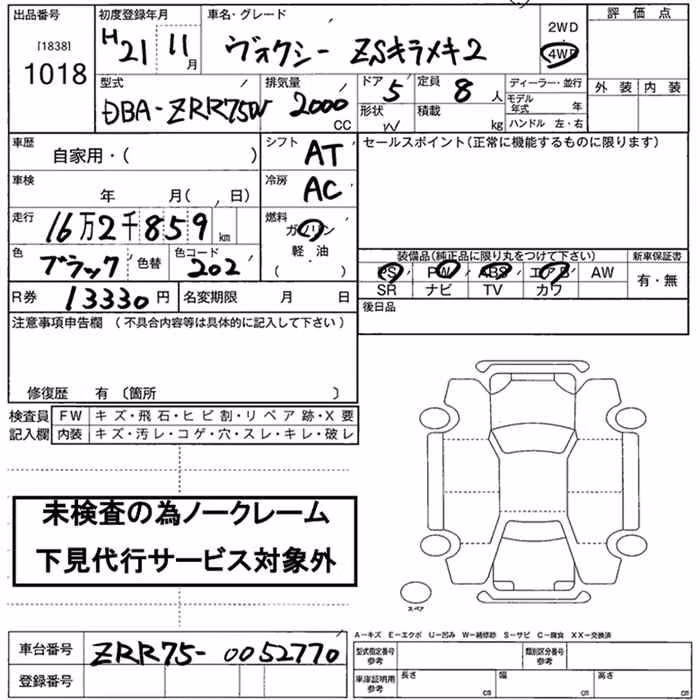 出品番号 初度登録年月 車名・グレード 2WD ・ 4WD 評価点
[1838] 1018 H21 11月 ヴォクシー ZSキラメキ2
外装 内装
型式 排気量 ドア 5 定員 8人 ディーラー・並行
DBA-ZRR75W 2000CC 形状 W 積載 kg モデル年式 年
ハンドル 左・右
車歴 シフト AT セールスポイント(正常に機能するものに限ります)
自家用・( )
車検 年 月( 、日) 冷房 AC
走行 16万2千859km 燃料 ガソリン
軽・油
( )
色 ブラック 色替 色コード 202
装備品(純正品に限り丸をつけて下さい) 新車保証書
PS PW ABS エアB AW 有・無
SR ナビ TV カワ
R券 13330円 名変期限 月 日
後日品
注意事項申告欄 (不具合内容等は具体的に記入して下さい)
修復歴 有 〔箇所 〕
検査員記入欄 FW キズ・飛石・ヒビ割・リペア跡・X要
内装 キズ・汚レ・コゲ・穴・スレ・キレ・破レ
未検査の為ノークレーム
下見代行サービス対象外
スペア
A-キズ E-エクボ U-凹み W-補修跡 S-サビ C-腐食 XX-交換済
車台番号 ZRR75-0052770
型式指定番号 参考 類別区分番号 参考
登録番号
車庫証明用 参考 長さ cm 幅 cm 高さ cm